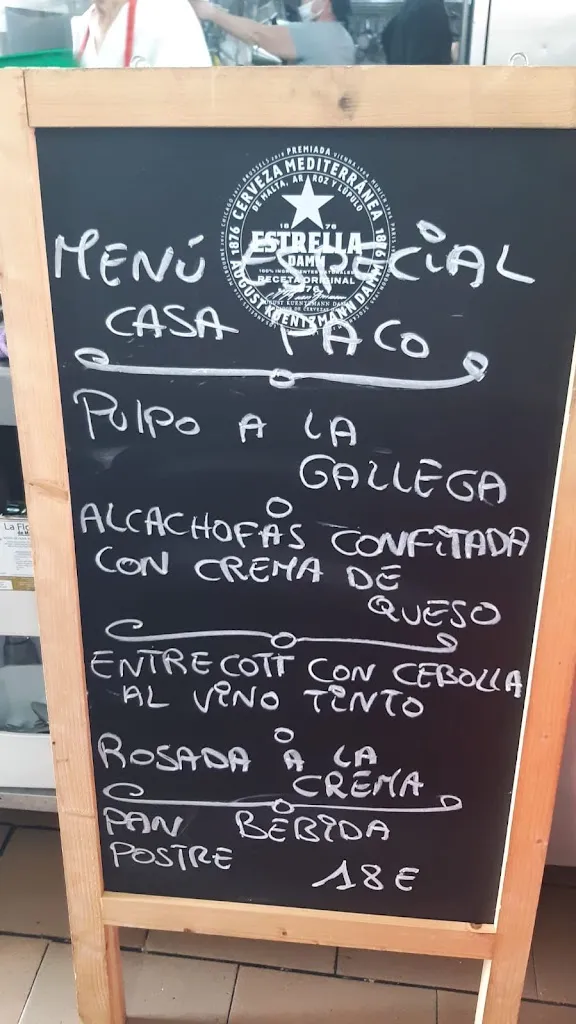 PREMIADA
CERVEZA MEDITERRÁNEA
DE MALTA, ARROZ Y LÚPULO
1876
ESTRELLA
DAMM
100% INGREDIENTES NATURALES
RECETA ORIGINAL
1876
AUGUST KUENTZMANN DAMM
MENÚ ESPECIAL
CASA PACO
PULPO A LA
GALLEGA
O
ALCACHOFAS CONFITADA
CON CREMA DE
QUESO
ENTRECOTT CON CEBOLLA
AL VINO TINTO
O
ROSADA A LA
CREMA
PAN BEBIDA
POSTRE 18€
La Flo